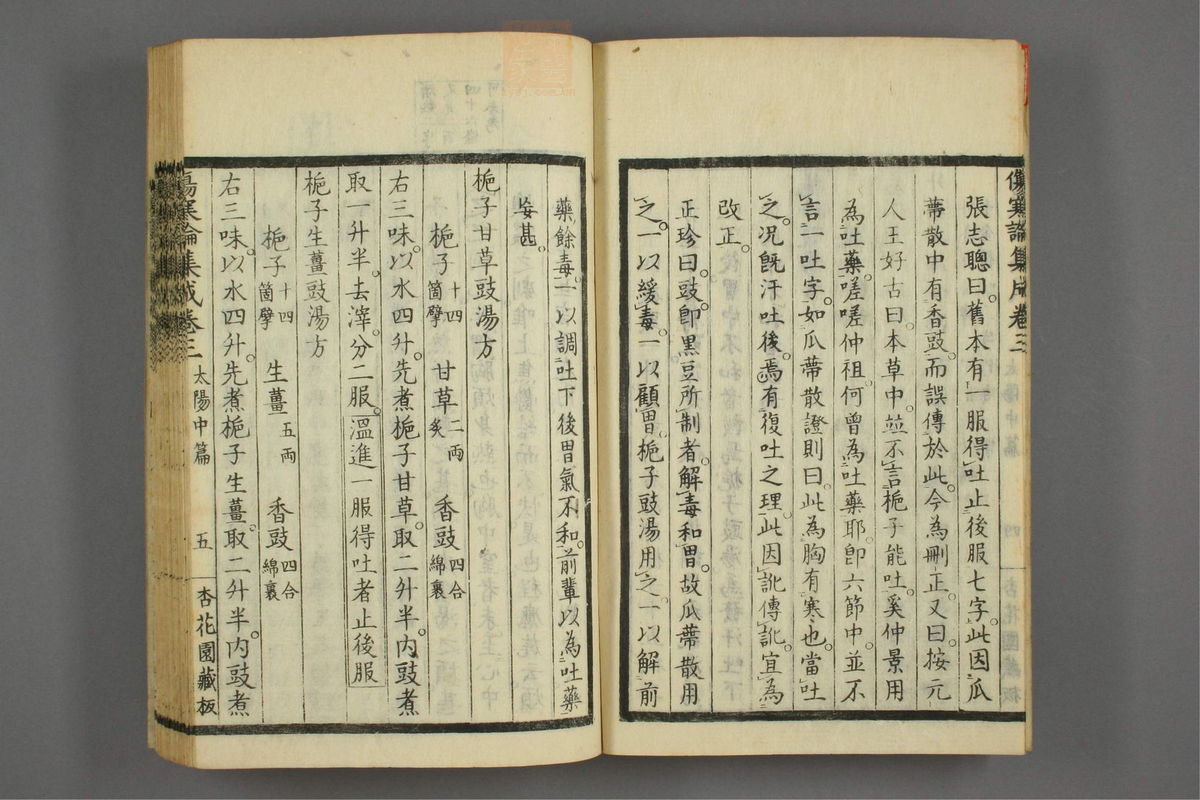 傷寒論集成卷三
張志聰曰。舊本有一服得吐止後服七字。此因瓜
蔕散中有香豉而誤傳於此。今為刪正。又曰。按元
人王好古曰。本草中。並不言梔子能吐。奚仲景用
為吐藥。嗟嗟仲祖何曾為吐藥耶。即六節中。並不
言一吐字。如瓜蔕散證則曰。此為胸有寒也。當吐
之。况旣汗吐後。焉有復吐之理。此因訛傳訛。宜為
改正。
正珍曰。豉。卽黑豆所制者。解毒和胃。故瓜蔕散用
之。一以緩毒。一以顧胃。梔子豉湯用之。一以解前
藥餘毒。一以調吐下後胃氣不和。前輩以為吐藥
妄甚。
梔子甘草豉湯方
梔子十四箇擘 甘草二兩炙 香豉四合綿裹
右三味。以水四升。先煮梔子甘草。取二升半。內豉煮
取一升半。去滓。分二服。溫進一服得吐者止後服
梔子生薑豉湯方
梔子十四箇擘 生薑五兩 香豉四合綿裹
右三味。以水四升。先煮梔子生薑。取二升半。內豉煮
傷寒論集成卷三 太陽中篇 五 杏花園藏板